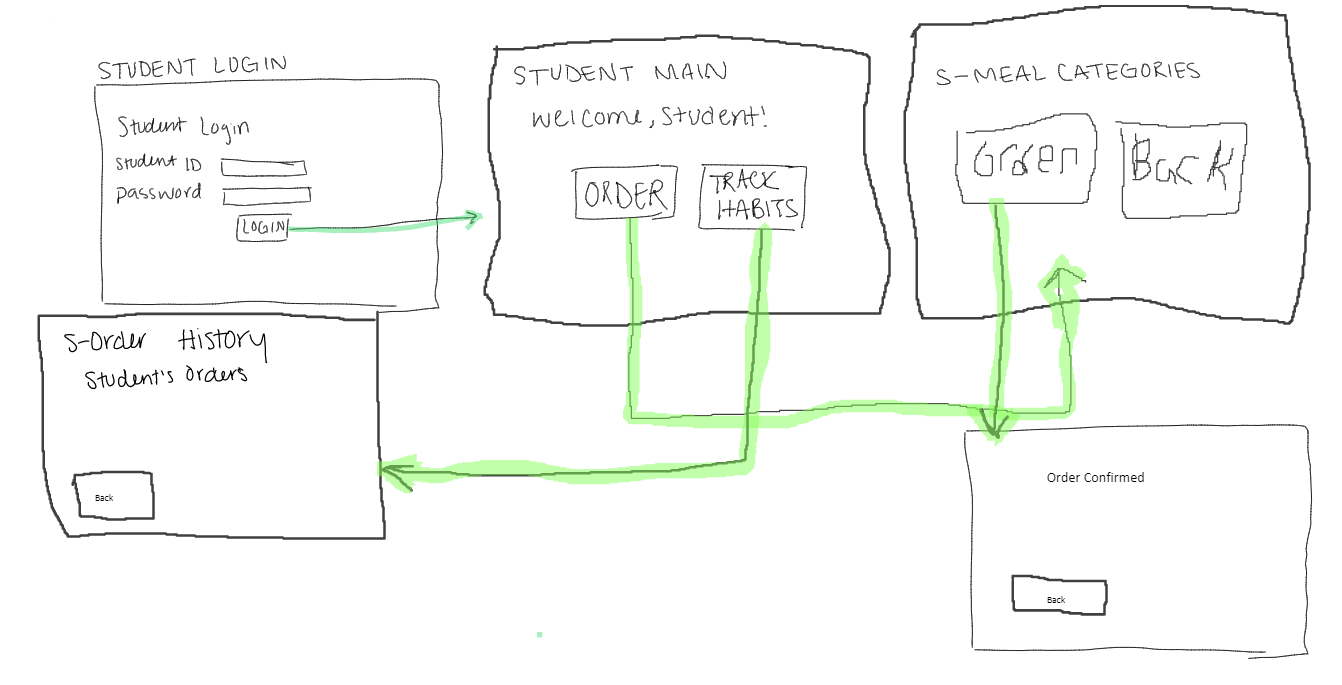 STUDENT LOGIN
Student Login
Student ID
password
LOGIN
STUDENT MAIN
Welcome, Student!
ORDER
TRACK
HABITS
S-MEAL CATEGORIES
Order
Back
S-Order History
Student's Orders
Back
Order Confirmed
Back